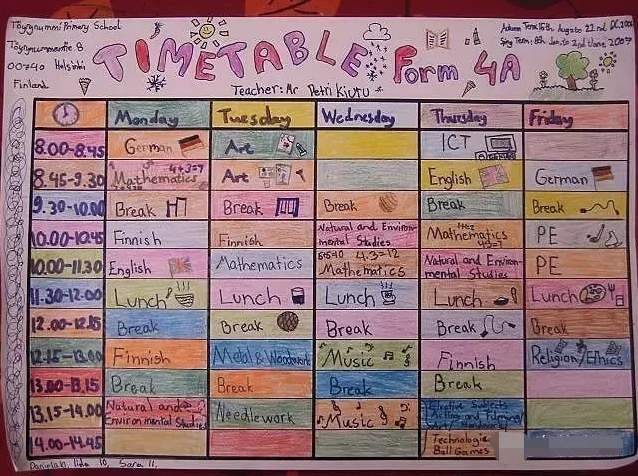 Töyrynummi Primary School
Töyrynummentie 8
00740 Helsinki
Finland
TIMETABLE Form 4A
Teacher: Mr Petri Kiutu
Autumn Term: 16th Aug to 22nd
Spring Term: 8th Jan. to 2nd June 2007
Monday Tuesday Wednesday Thursday Friday
8.00-8.45 German Art ICT
8.45-9.30 Mathematics Art English German
9.30-10.00 Break Break Break Break Break
10.00-10.45 Finnish Finnish Natural and Environ-
mental Studies Mathematics PE
10.00-11.30 English Mathematics Mathematics Natural and Environ-
mental Studies PE
11.30-12.00 Lunch Lunch Lunch Lunch Lunch
12.00-12.15 Break Break Break Break Break
12.15-13.00 Finnish Metal & Woodwork Music Finnish Religion/Ethics
13.00-13.15 Break Break Break Break
13.15-14.00 Natural and
Environmental Studies Needlework Music Elective Subjects
Acting and Filming/
14.00-14.45 Technologie
Ball Games